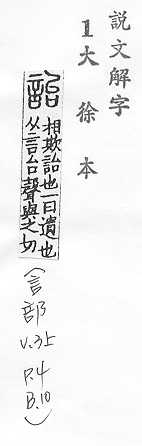 説文解字
1大徐本
詒
相欺詒也一曰遺也
从言台聲與之切
(言部
V.3上
P.4
B.10)